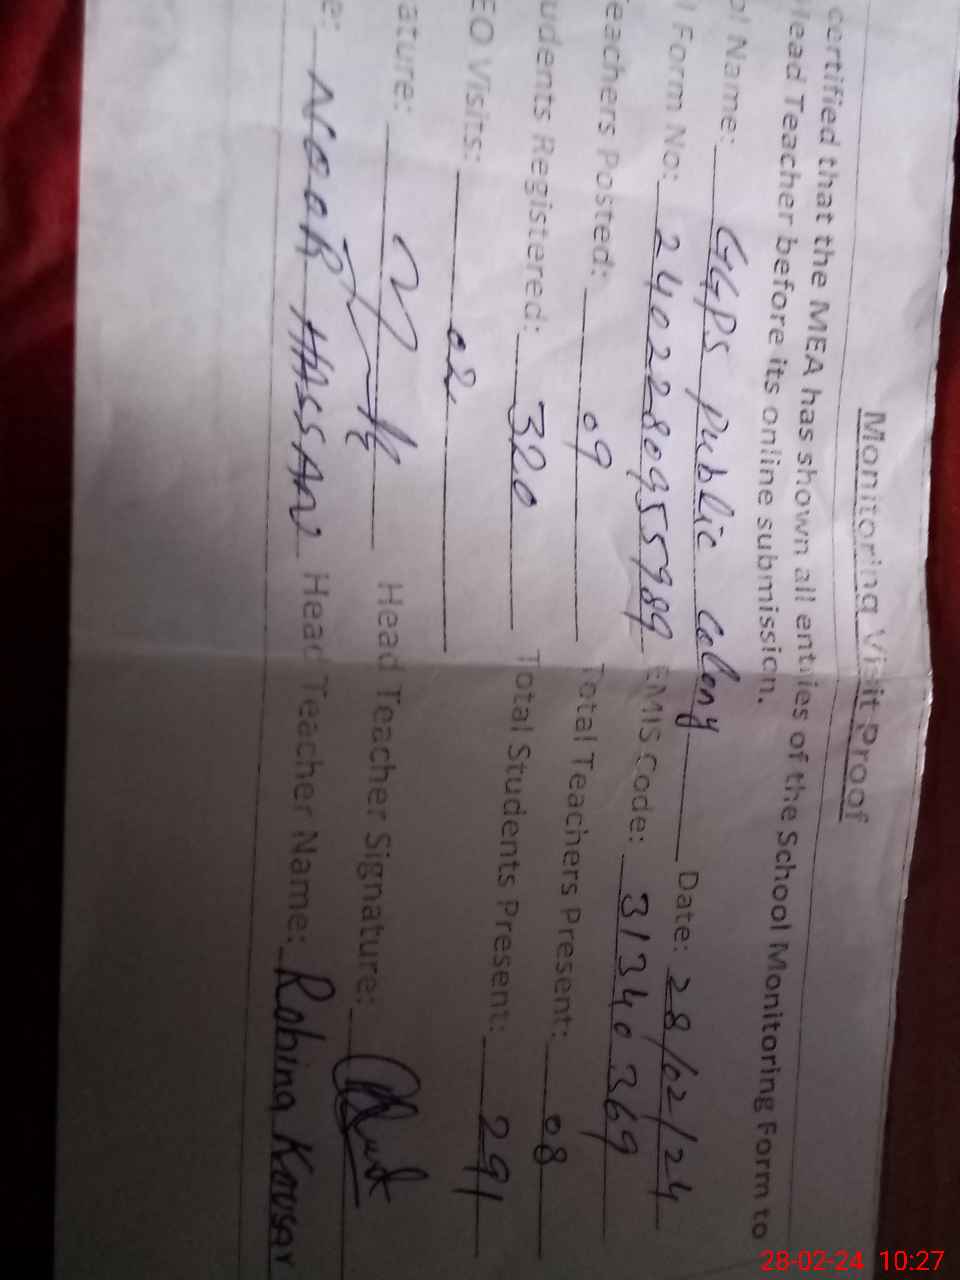 Monitoring Visit Proof
certified that the MEA has shown all entries of the School Monitoring Form to
Head Teacher before its online submission.
ol Name: GGPS Public Colony Date: 28/02/24
l Form No: 2402280955989 EMIS Code: 31340369
Teachers Posted: 09 Total Teachers Present: 08
udents Registered: 320 Total Students Present: 291
EO Visits: 02
ature: Head Teacher Signature:
e: NOOR HASSAN Head Teacher Name: Robina Kousar
28-02-24 10:27